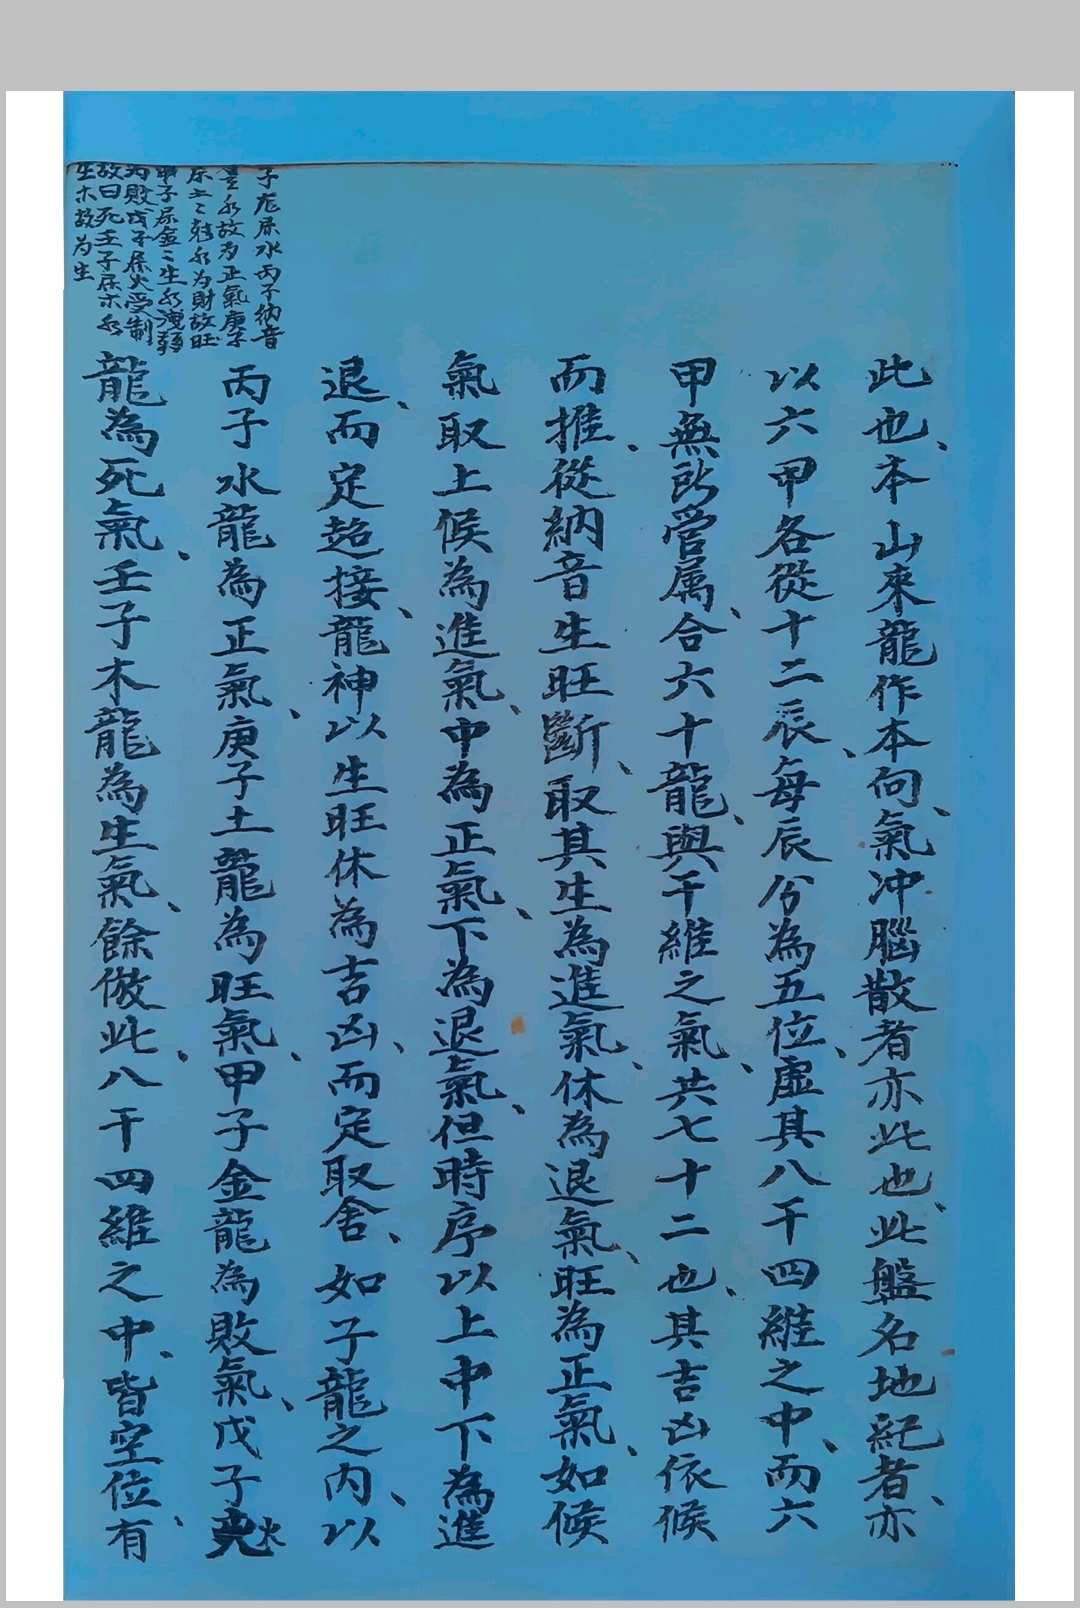 此也、本山來龍作本向、氣冲腦散者亦此也、此盤名地紀者、亦
以六甲各從十二辰、每辰分為五位、虛其八干四維之中、而六
甲無所管属、合六十龍、與干維之氣、共七十二也、其吉凶依候
而推、從納音生旺斷、取其生為進氣、休為退氣、旺為正氣、如候
氣取上候為進氣、中為正氣、下為退氣、但時序以上中下為進
退、而定超接、龍神以生旺休為吉凶、而定取舍、如子龍之内、以
丙子水龍為正氣、庚子土龍為旺氣、甲子金龍為敗氣、戊子火
龍為死氣、壬子木龍為生氣、餘倣此、八干四維之中、皆空位、有
子龙属水丙子納音
水故为正氣庚子
属土〻尅水为財故旺
甲子属金〻生水洩
为敗戊子属火受制
故曰死壬子属木水
生木故为生